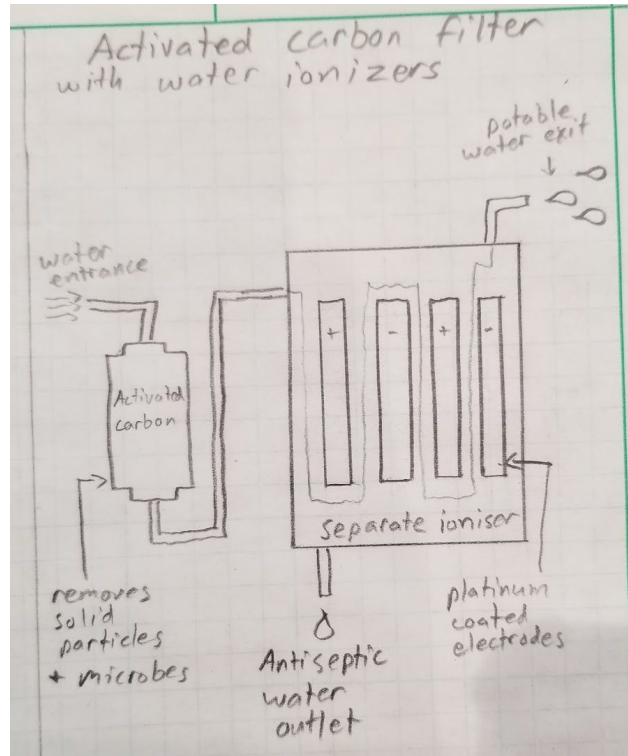 Activated carbon filter
with water ionizers
potable
water exit
water
entrance
+
-
+
-
Activated
carbon
separate ioniser
removes
solid
particles
+ microbes
Antiseptic
water
outlet
platinum
coated
electrodes